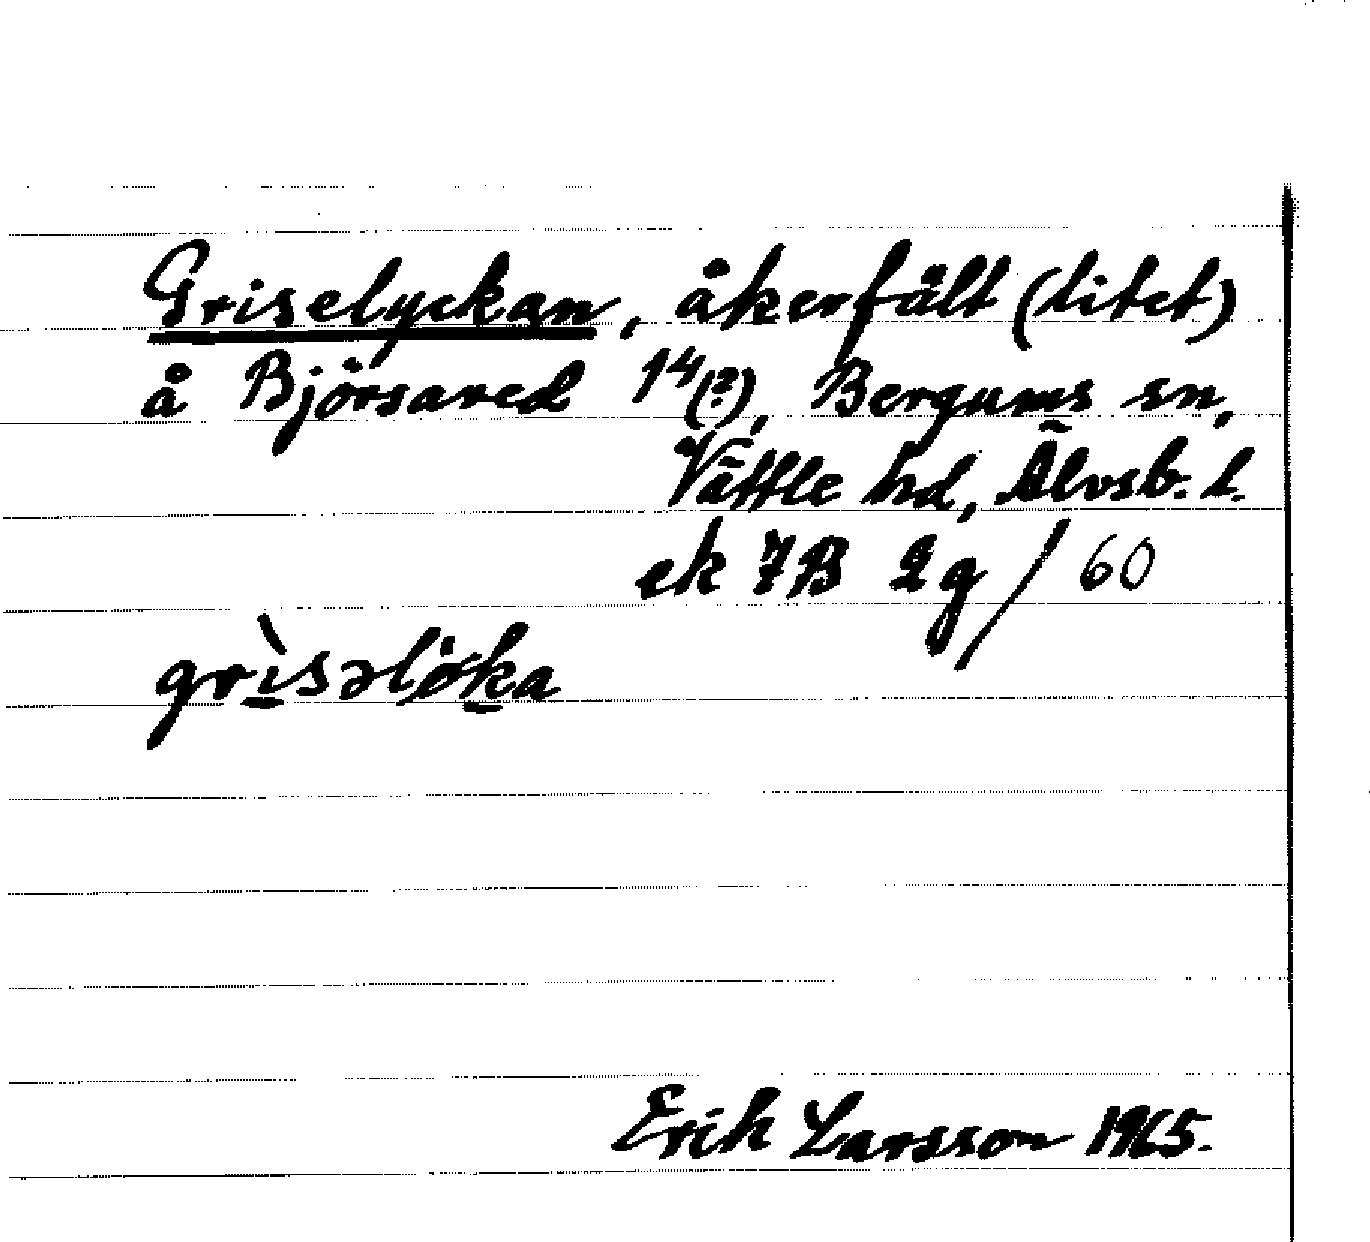 Griselyckan, åkerfält (litet)
å Björsared 14(?), Bergums sn,
Vättle hd, Älvsb. l.
ek 7B 2g / 60
grìsəlø̀ka
Erik Larsson 1965.